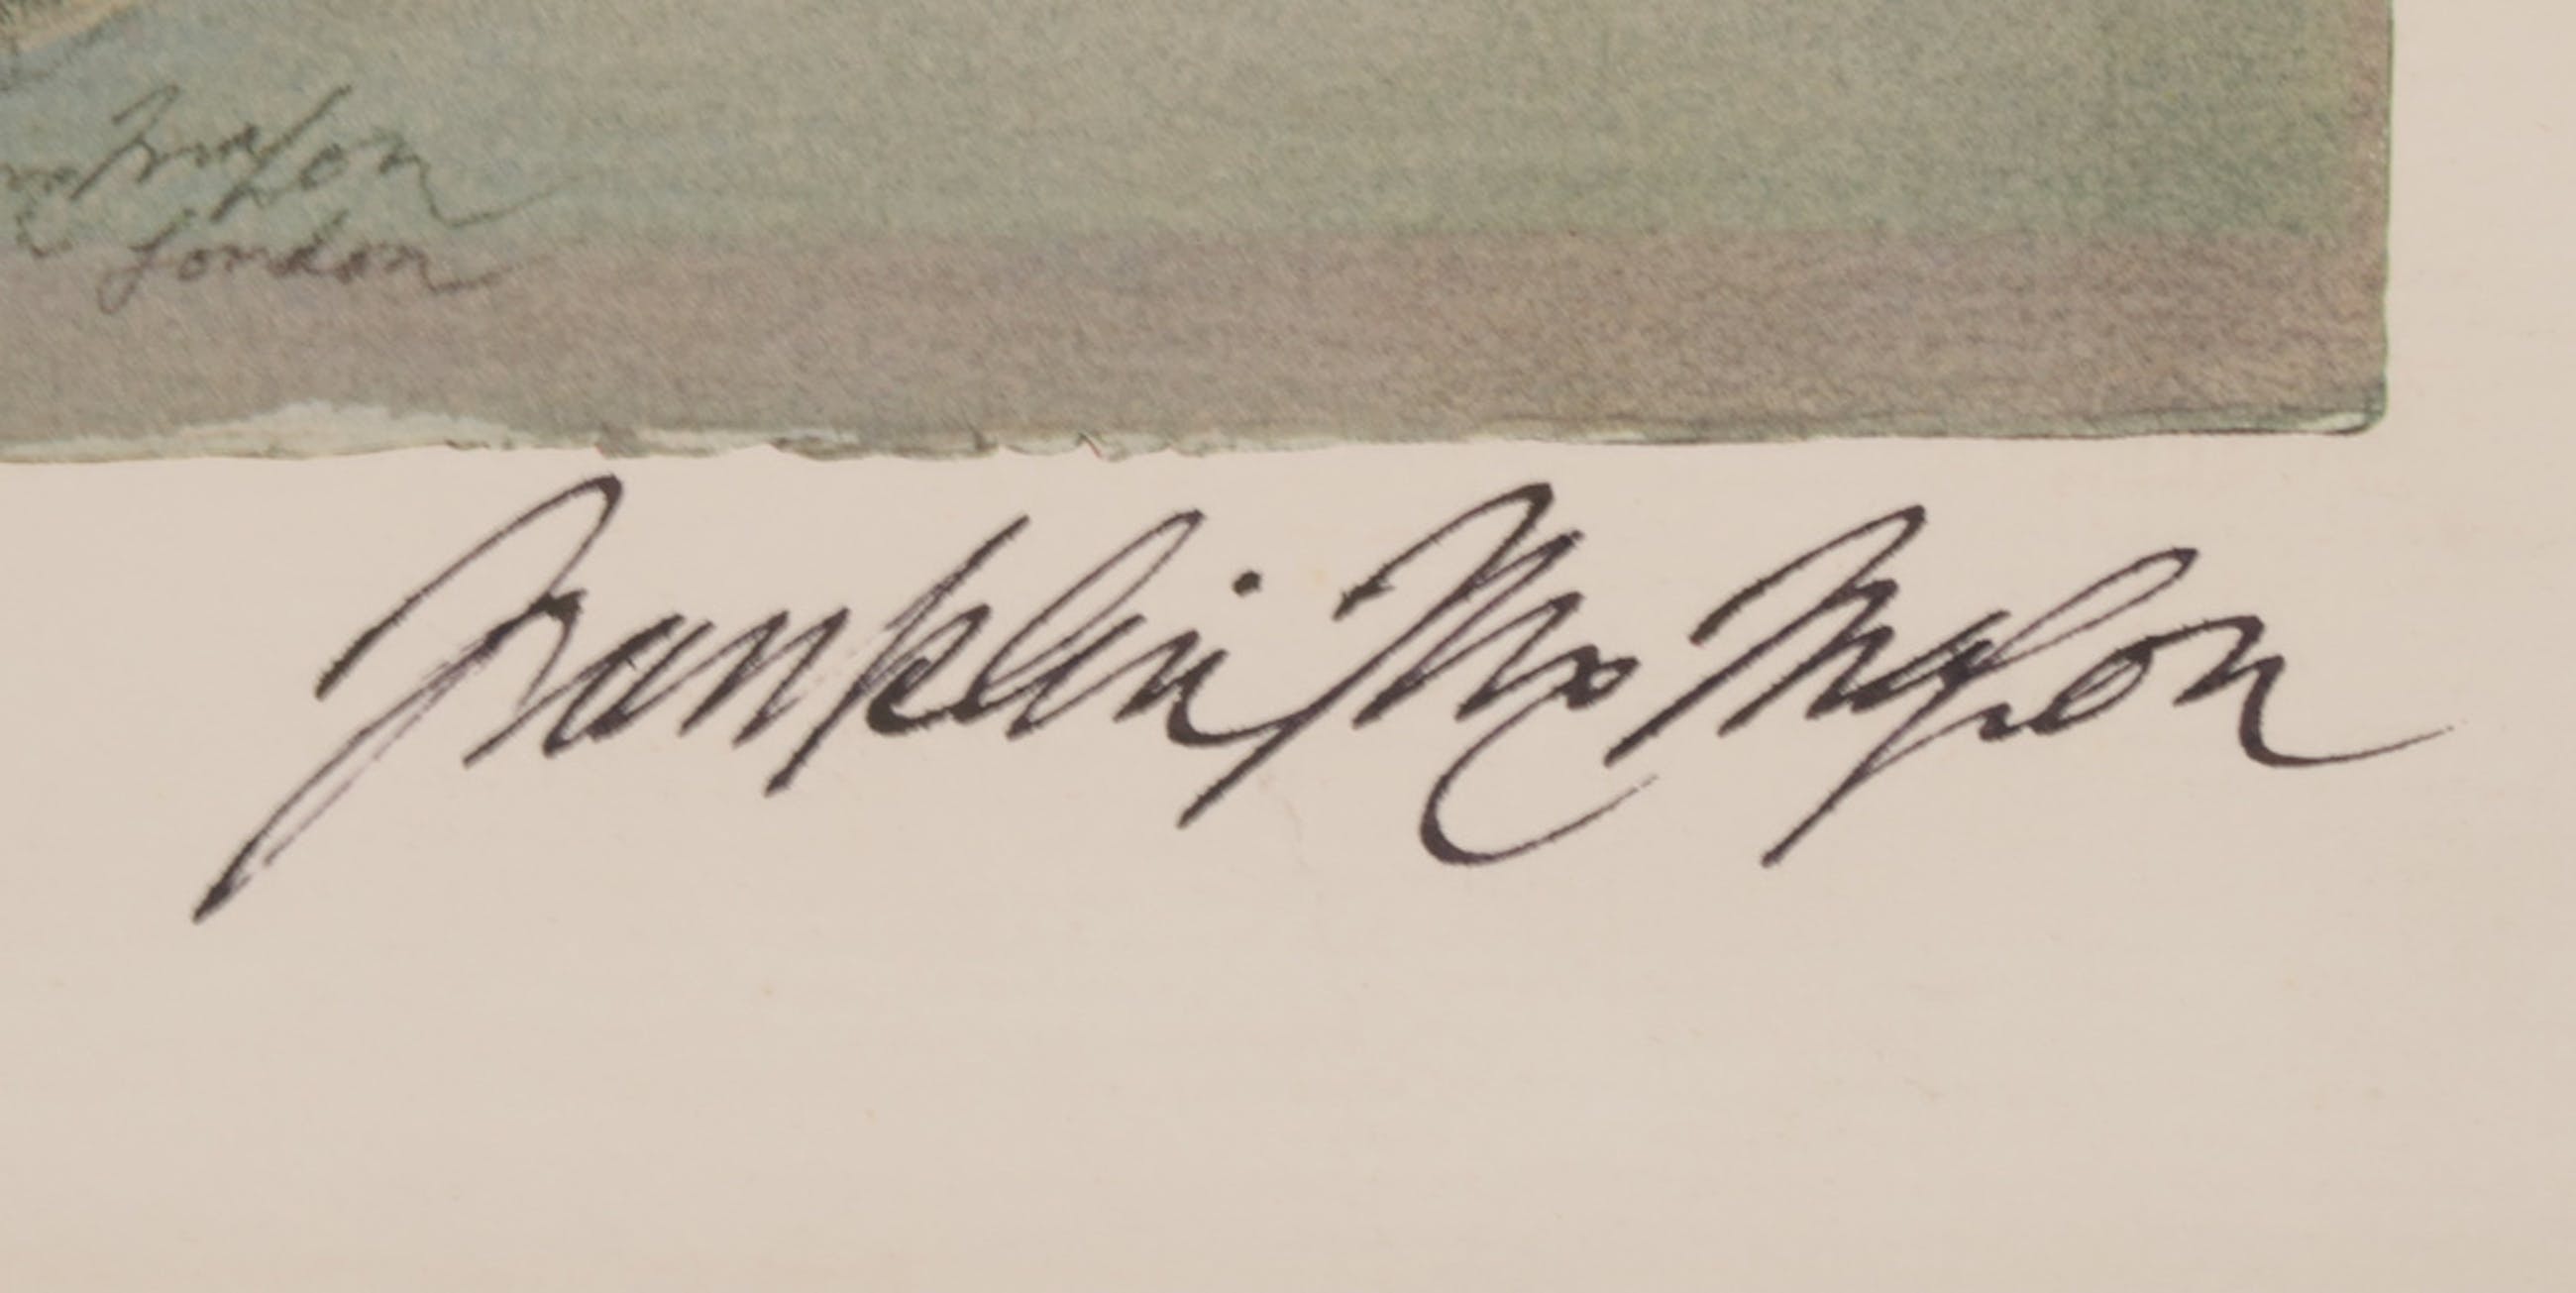 Mahon
London
Franklin McMahon